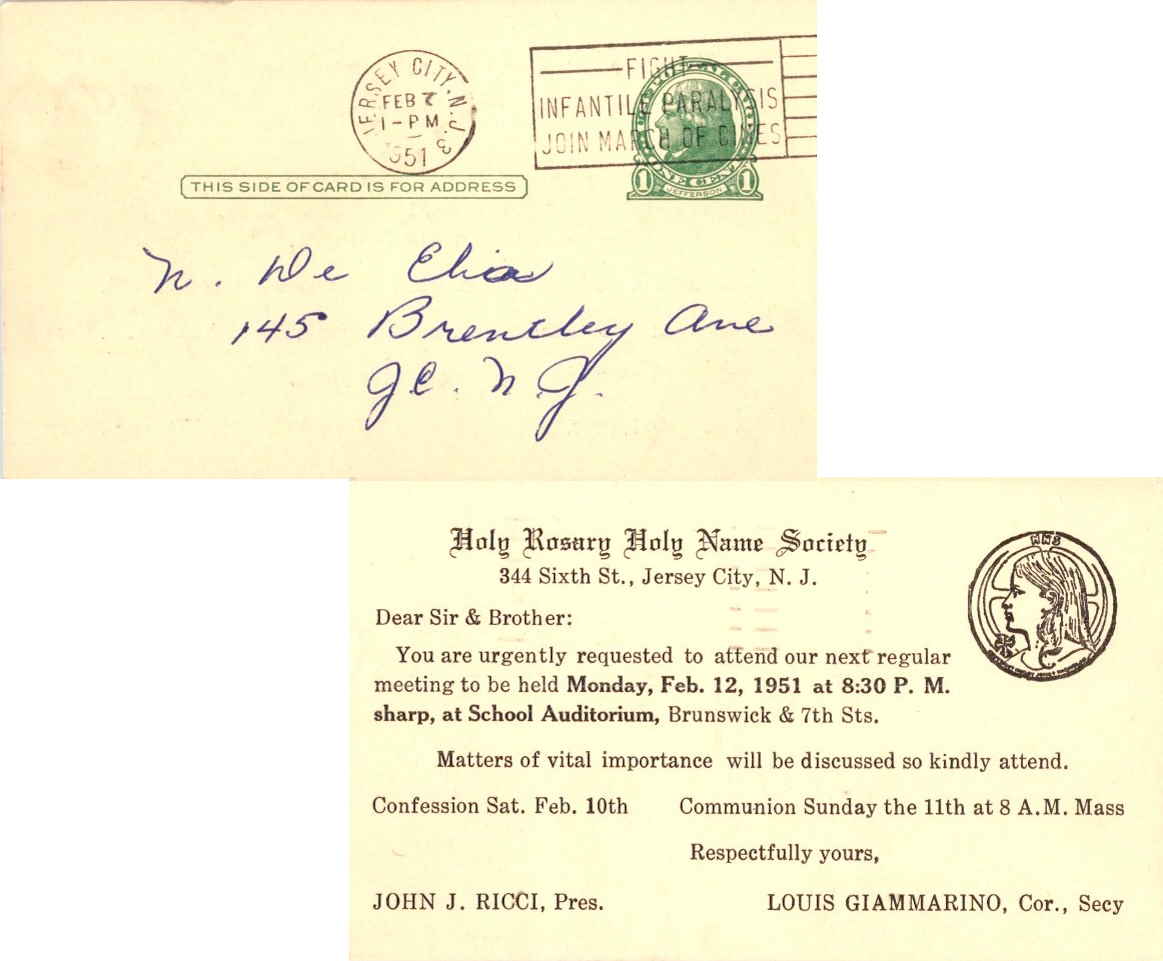 JERSEY CITY, N.J. 3
FEB 7
1-PM
1951
FIGHT
INFANTILE PARALYSIS
JOIN MARCH OF DIMES
ONE CENT
1 JEFFERSON 1
THIS SIDE OF CARD IS FOR ADDRESS
N. De Elia
145 Brentley Ave
J.C. N.J.
Holy Rosary Holy Name Society
344 Sixth St., Jersey City, N. J.
HNS
Dear Sir & Brother:
You are urgently requested to attend our next regular
meeting to be held Monday, Feb. 12, 1951 at 8:30 P. M.
sharp, at School Auditorium, Brunswick & 7th Sts.
Matters of vital importance will be discussed so kindly attend.
Confession Sat. Feb. 10th Communion Sunday the 11th at 8 A.M. Mass
Respectfully yours,
JOHN J. RICCI, Pres. LOUIS GIAMMARINO, Cor., Secy